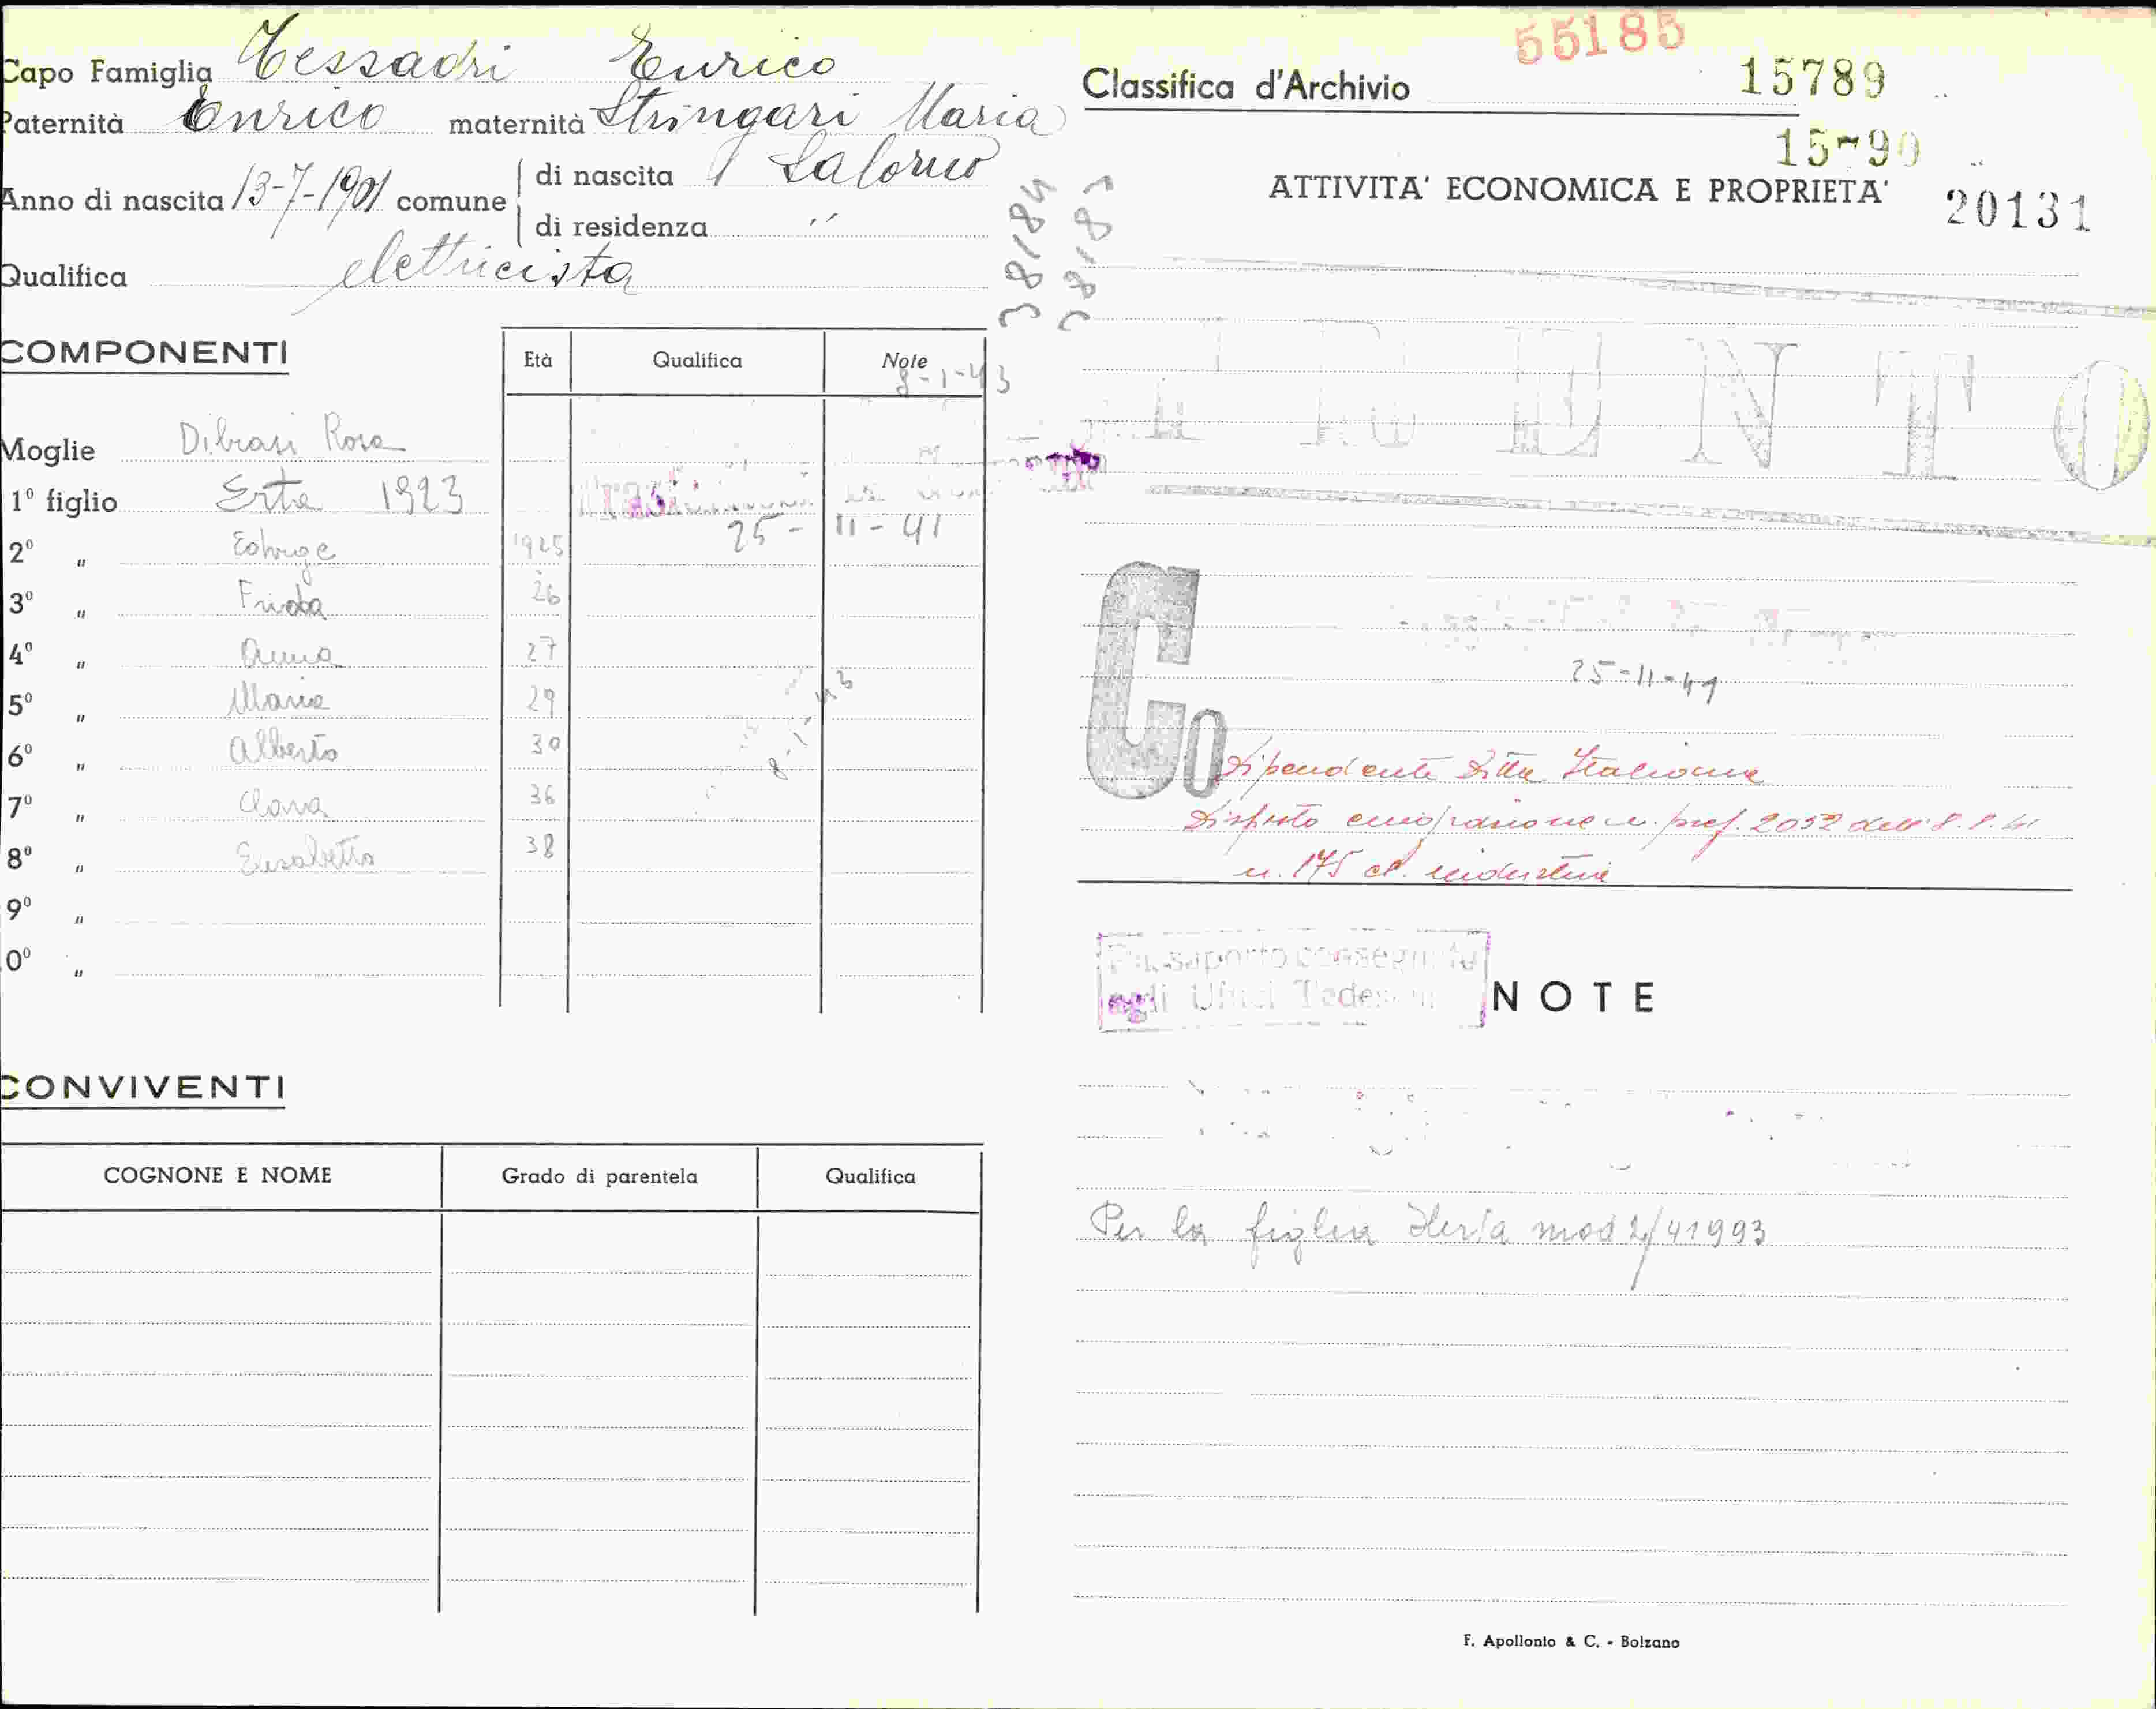 Capo Famiglia Tessadri Enrico
Paternità Enrico maternità Stringari Maria
Anno di nascita 13-7-1901 comune
di nascita Salorno
di residenza "
Qualifica elettricista
COMPONENTI
Età Qualifica Note
8-1-43
Moglie Dibiasi Rosa
1º figlio Erta 1923
25-11-41
2º " Edvige 1925
3º " Frida 26
4º " Anna 27
5º " Maria 29
6º " Alberto 30
8-1-43
7º " Clara 36
8º " Elisabetta 38
9º "
0º "
CONVIVENTI
COGNONE E NOME Grado di parentela Qualifica
55185
Classifica d'Archivio 15789
15790
38184
ATTIVITA' ECONOMICA E PROPRIETA' 20131
25-11-41
Co
Dipendente Ditta Italiana
Disposto emigrazione n. pref. 2052 dell'
n. 175 industrie
Passaporto consegnato
agli Uffici Tedeschi
NOTE
Per la figlia Herta mod 2/41993
F. Apollonio & C. - Bolzano